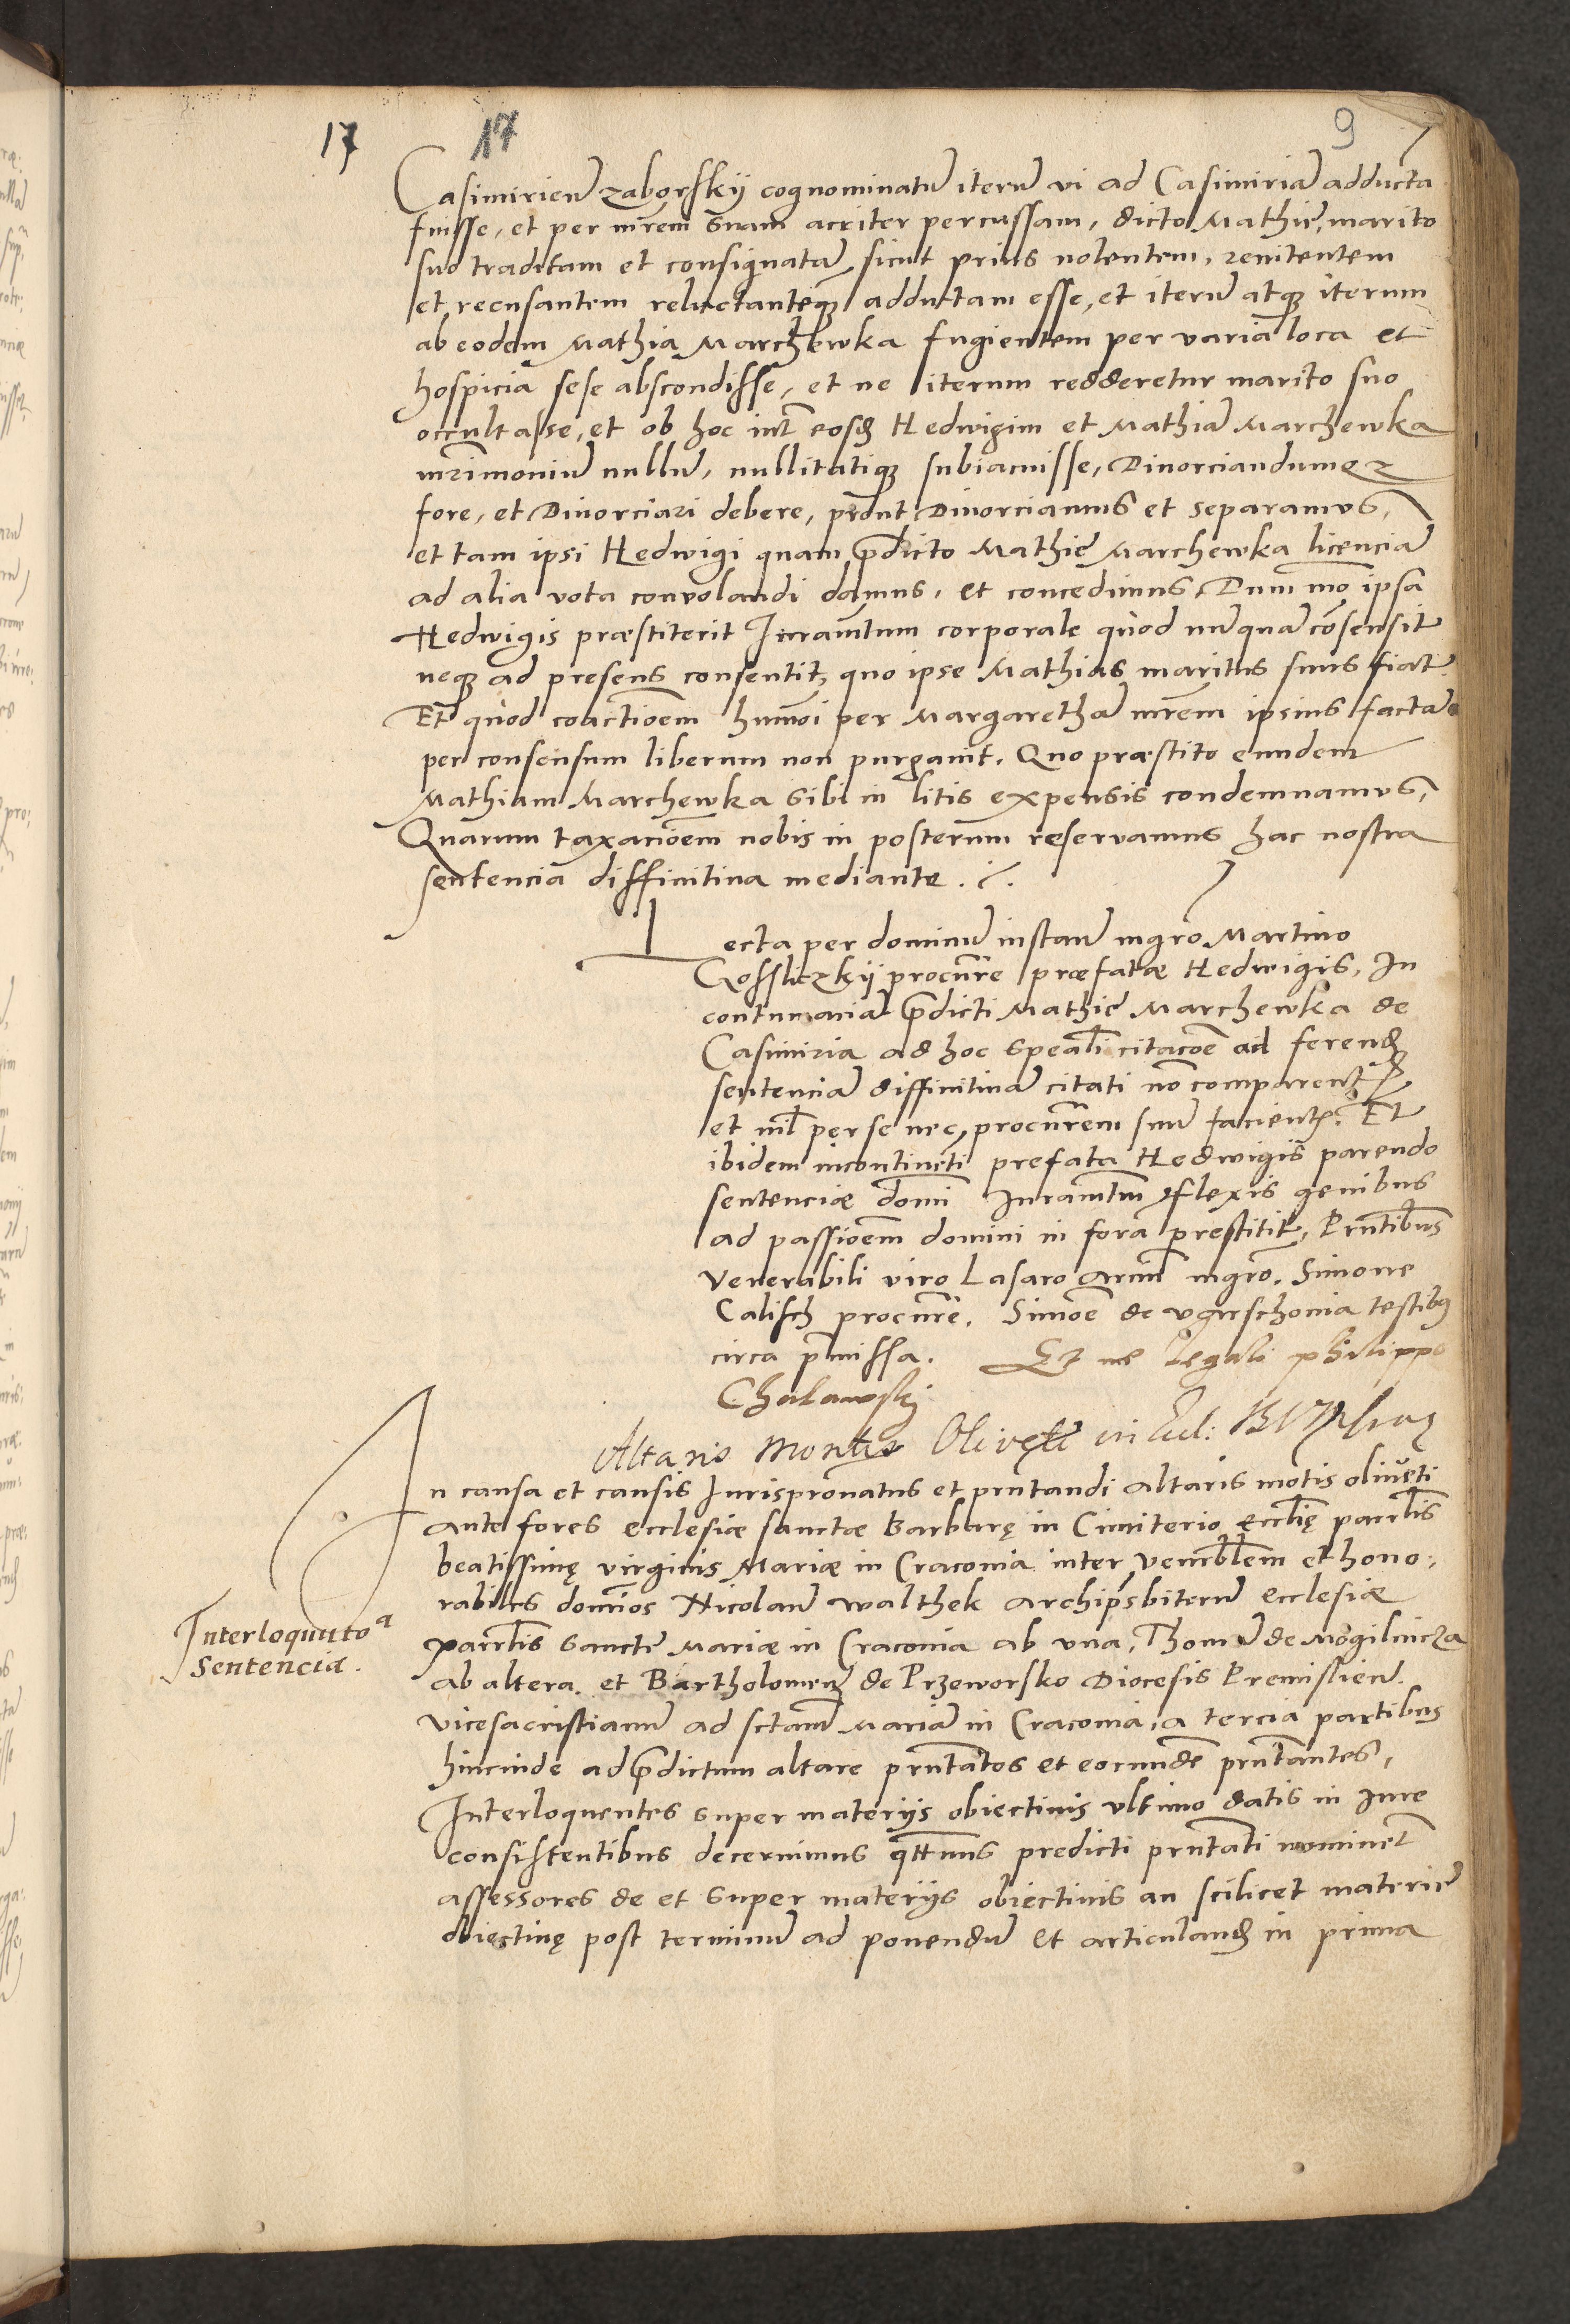 17 17 9
Casimirien̄ zaborskij cognominatū iterū vi ad Casimiriā adductā
fuisse, et per mr̄em suam acriter percussam, dicto Mathię, marito
suo traditam et consignatā, sicut prius nolentem, renitentem
et recusantem reluctantēq3 adductam esse, et iterū atq3 iterum
ab eodem Mathia Marchewka fugientem per varia loca et
hospicia sese abscondisse, et ne iterum redderetur marito suo
occultasse, et ob hoc int̄ eosd̄ Hedwigim et Mathiā Marchewka
mr̄imoniū nullū, nullitatiq3 subiacuisse, Diuorciandumq3
fore, et Diuorciari debere, prout Diuorciamus et separamus,
et tam ipsi Hedwigi quam p̄dicto Mathię Marchewka licenciā
ad alia vota convolandi damus, et concedimus, Dum mō ipsa
Hedwigis præstiterit Iuramtum corporale quod nūquā cōsensit
neq3 ad presens consentit, quo ipse Mathias maritus suus fiat.
Et quod coactioem hmōi per Margarethā mr̄em ipsius factā
per consensum liberum non purgauit. Quo præstito eundem
Mathiam Marchewka sibi in litis expensis condemnamus,
Quarum taxacioēm nobis in posterum reservamus hac nostra
sentencia diffinitiua mediante.
Lecta per dominū instan̄ mgr̄o Martino
Gossliczkij procur̄e præfatæ Hedwigis, In
contumaciā p̄dicti Mathię Marchewka de
Casimiria ad hoc speāli citacoē ad ferend̄
sentenciā diffinitiuā citati nō comparent̄
et nil per se nec procur̄em suū facient̄. Et
ibidem incontinēti prefata Hedwigis parendo
sentenciæ domī Iuramtm flexis genibus
ad passioēm domini in forā prestitit, Prn̄tibus
Venerabili viro Lasaro arciū mgr̄o, Simone
Calisch procur̄e, Simoē de testibq
circa p̄missa. Et me legali philippo
Chalawskj
Altaris Montis Oliveti in Eccl: B V M
In causa et causis Iurispron̄atus et prn̄tandi altaris mōtis oliueti
ante fores ecclesiæ sanctæ Barbarę in Cimiterio ecclię parr̄lis
beatissimę virginis Mariæ in Cracouia inter venerāblem et hono,
rabiles domios Nicolaū walthek Archip̄sbiterū Ecclesiæ
parr̄lis Sancte Mariæ in Cracouia ab vna, Thomā de Mogilnicza
ab altera, et Bartholomeū de Przeworsko Diocesis Premislien̄.
vicesacristianū ad sctam Mariā in Cracouia, a tercia partibus
hincinde ad p̄dictum altare prn̄tatos et eorundē prn̄tantes,
Interloquentes super materijs obiectiuis vltimo datis in Iure
consistentibus decernimus qtt̄nus predicti prn̄tati nominēt
assessores de et super materijs obiectiuis an scilicet materię
obiectiuę post terminū ad ponendū et articuland̄ in prima
Interloquutoᵃ
Sentencia.